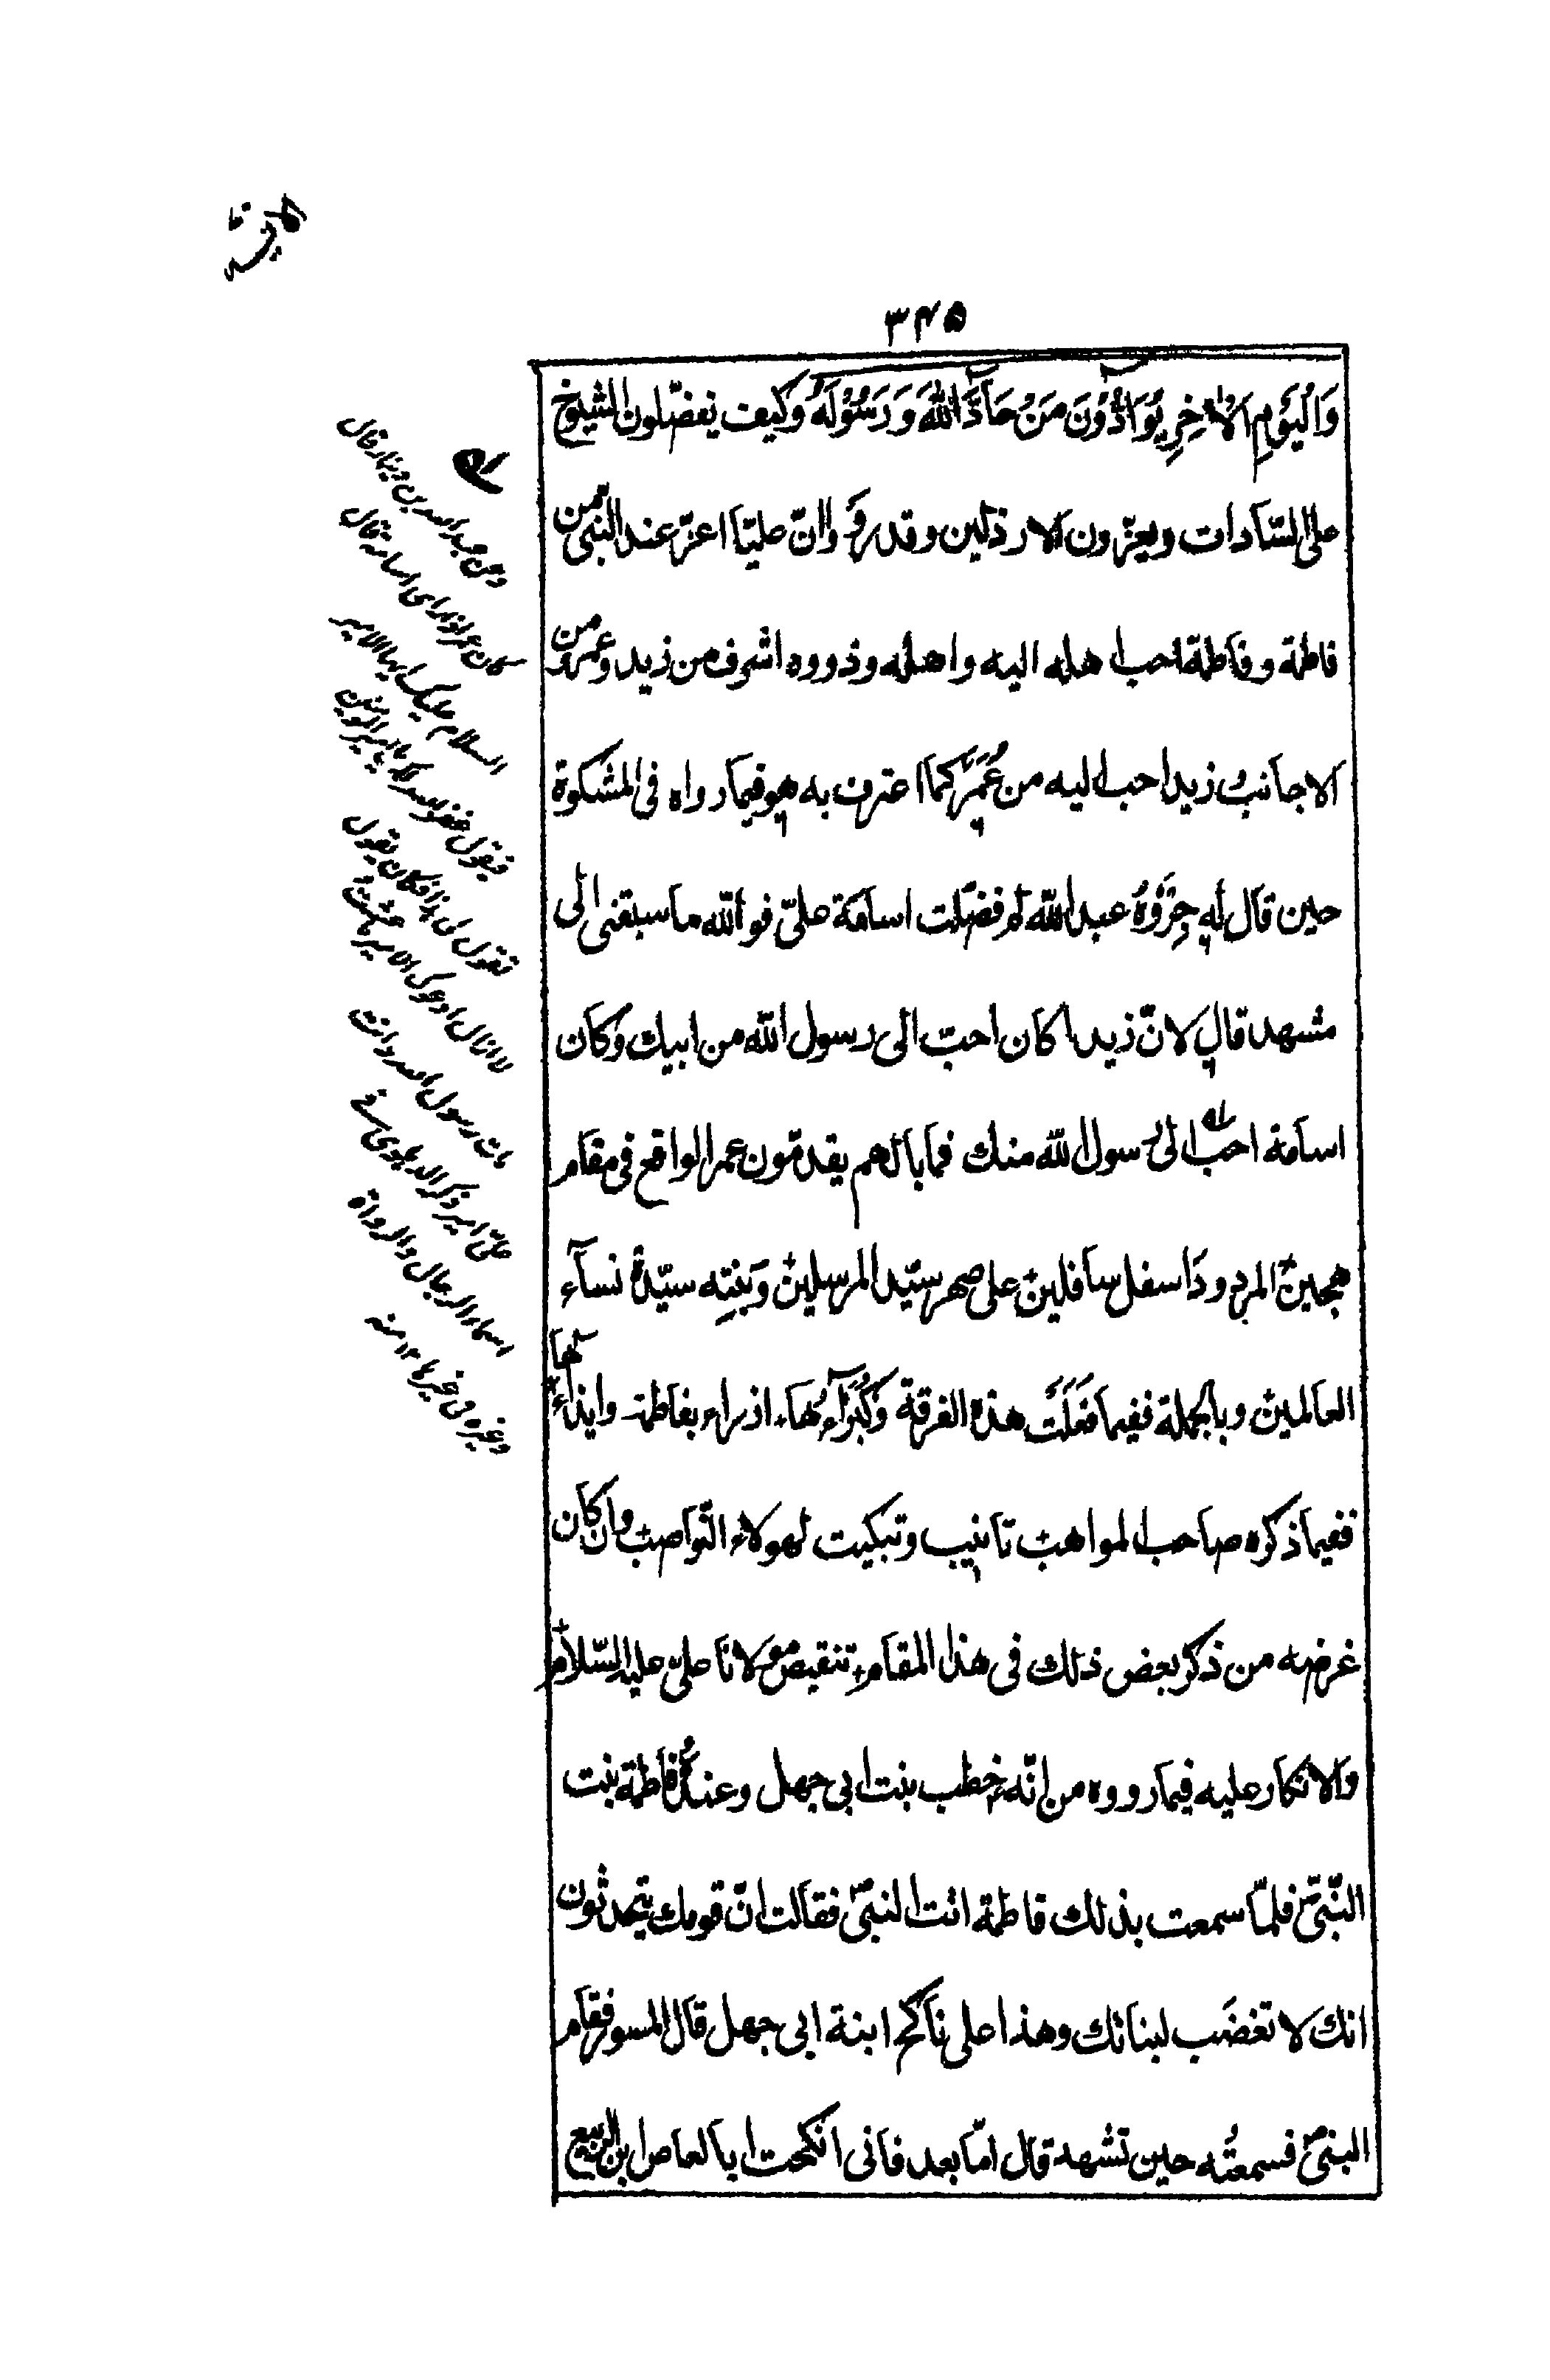 ٣٤٥
وَالْيَوْمِ الْاٰخِرِ يُوَآدُّوْنَ مَنْ حَآدَّ اللّٰهَ وَرَسُوْلَهٗ وكيف يفضّلون الشيوخ
على السّادات ويعزّون الارذلين وقد رووا انّ عليّا اعزّ عند النّبىّ من
فاطمة وفاطمة احب اهله اليه واهله وذووه اشرف من زيد وعمرو من
الاجانب زيد احب اليه من عُمَر كما اعترف به هو فيما رواه فى المشكوة
حين قال له جِرْوُهُ عبد الله لم فضّلت اسامة علىّ فوالله ما سبقنى الى
مشهد قال لانّ زيدا كان احبّ الى رسول الله من ابيك وكان
اسامة احب الى رسول الله منك فما بالهم يقدمّون عمر الواقع فى مقام
سجين المردود اسفل سافلين على صهر سيّد المرسلين وبنتِه سيّدة نسآء
العالمين وبالجملة ففيما فَعَلَتْ هذه الفرقة وَكُبَرَآءُهَا ازراء بفاطمة وايذاء لها
ففيما ذكره صاحب المواهب تانيب وتبكيت لهولاء النّواصب وان كان
غرضه من ذكر بعض ذلك فى هذا المقام تنقيص مولانا علىّ عليه السّلام
والانكار عليه فيما رووه من انّه خطب بنت ابى جهل وعنده فاطمة بنت
النّبىّ فلمّا سمعت بذلك فاطمة اتت النبىّ فقالت انّ قومك يتحدثون
انك لا تغضَب لبناتك وهذا على ناكح ابنة ابى جهل قال المسور فقام
النبىّ فسمعتُه حين تشهد قال امّا بعد فانى انكحت ابا العاص ابن الربيع
وعن عبد الله بن دينار قال
كان عمر اذا راى اسامة قال
السلام عليك ايها الامير
فيقول غفر الله لك يا امير المؤمنين
تقول لى هذا فكان يقول
لا ازال ادعوك الامير ما عشت
مات رسول الله وانت
علىّ امير ذكره الدهلوى فى
اسماء الرجال والرواة
وغيره فى غيرها ١٢ منه